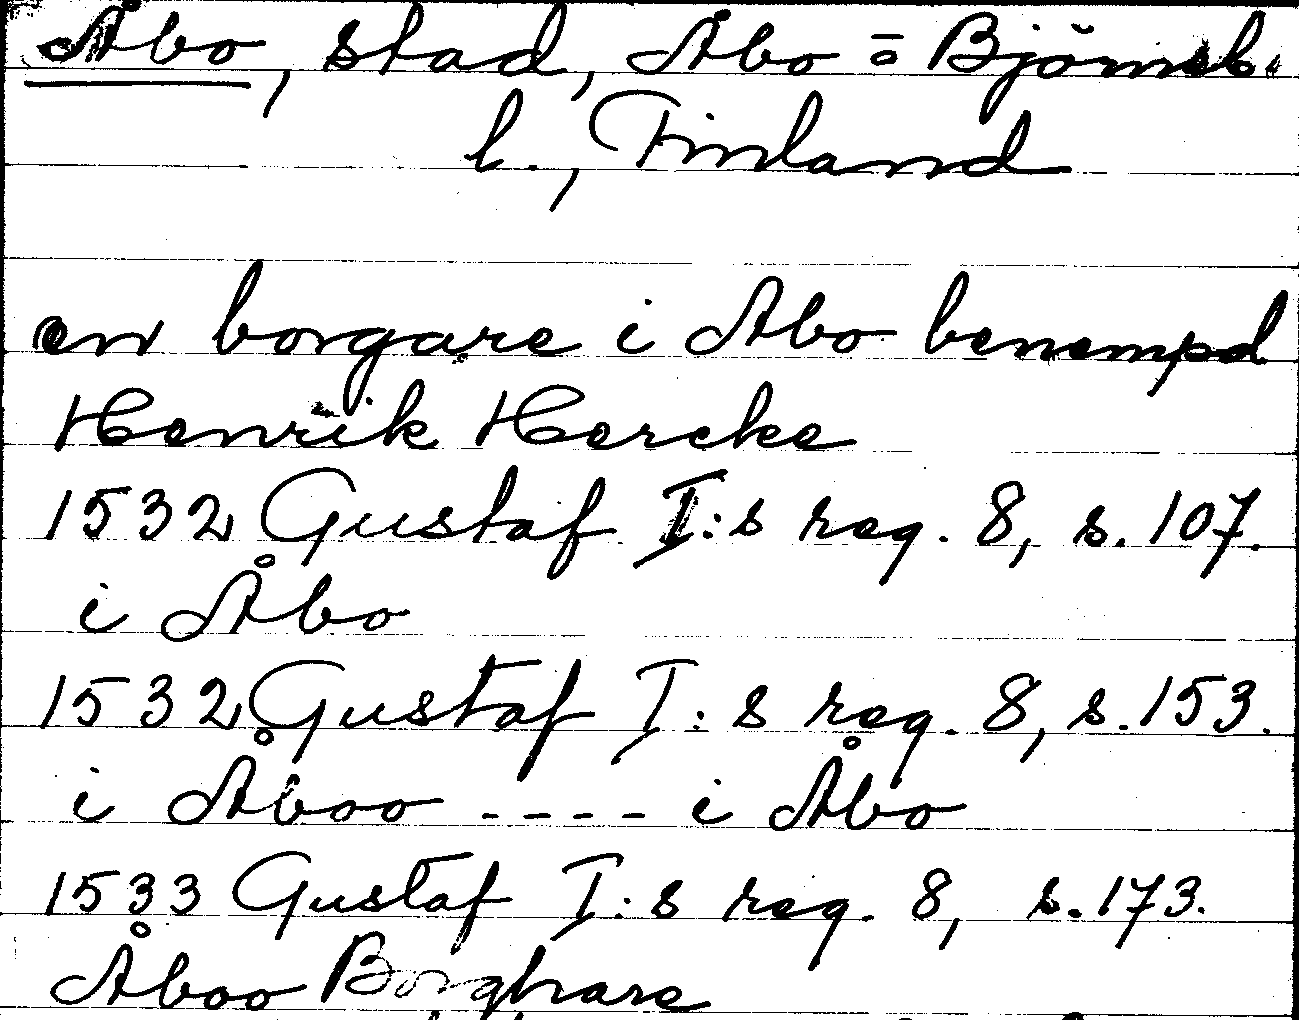 Åbo, stad, Åbo o Björneb.
l., Finland
en borgare i Åbo benempd
Henrik Hercke
1532 Gustaf I:s reg. 8, s. 107.
i Åbo
1532 Gustaf I:s reg. 8, s. 153.
i Åboo ---- i Åbo
1533 Gustaf I:s reg. 8, s. 173.
Åboo Borghare